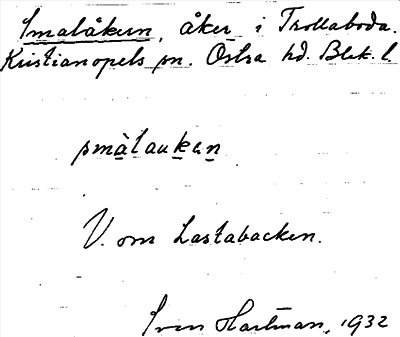 Smalåkern, åker i Trollaboda.
Kristianopels sn. Östra hd. Blek. l.
småtaukan
V. om Lastabacken.
Sven Hartman, 1932